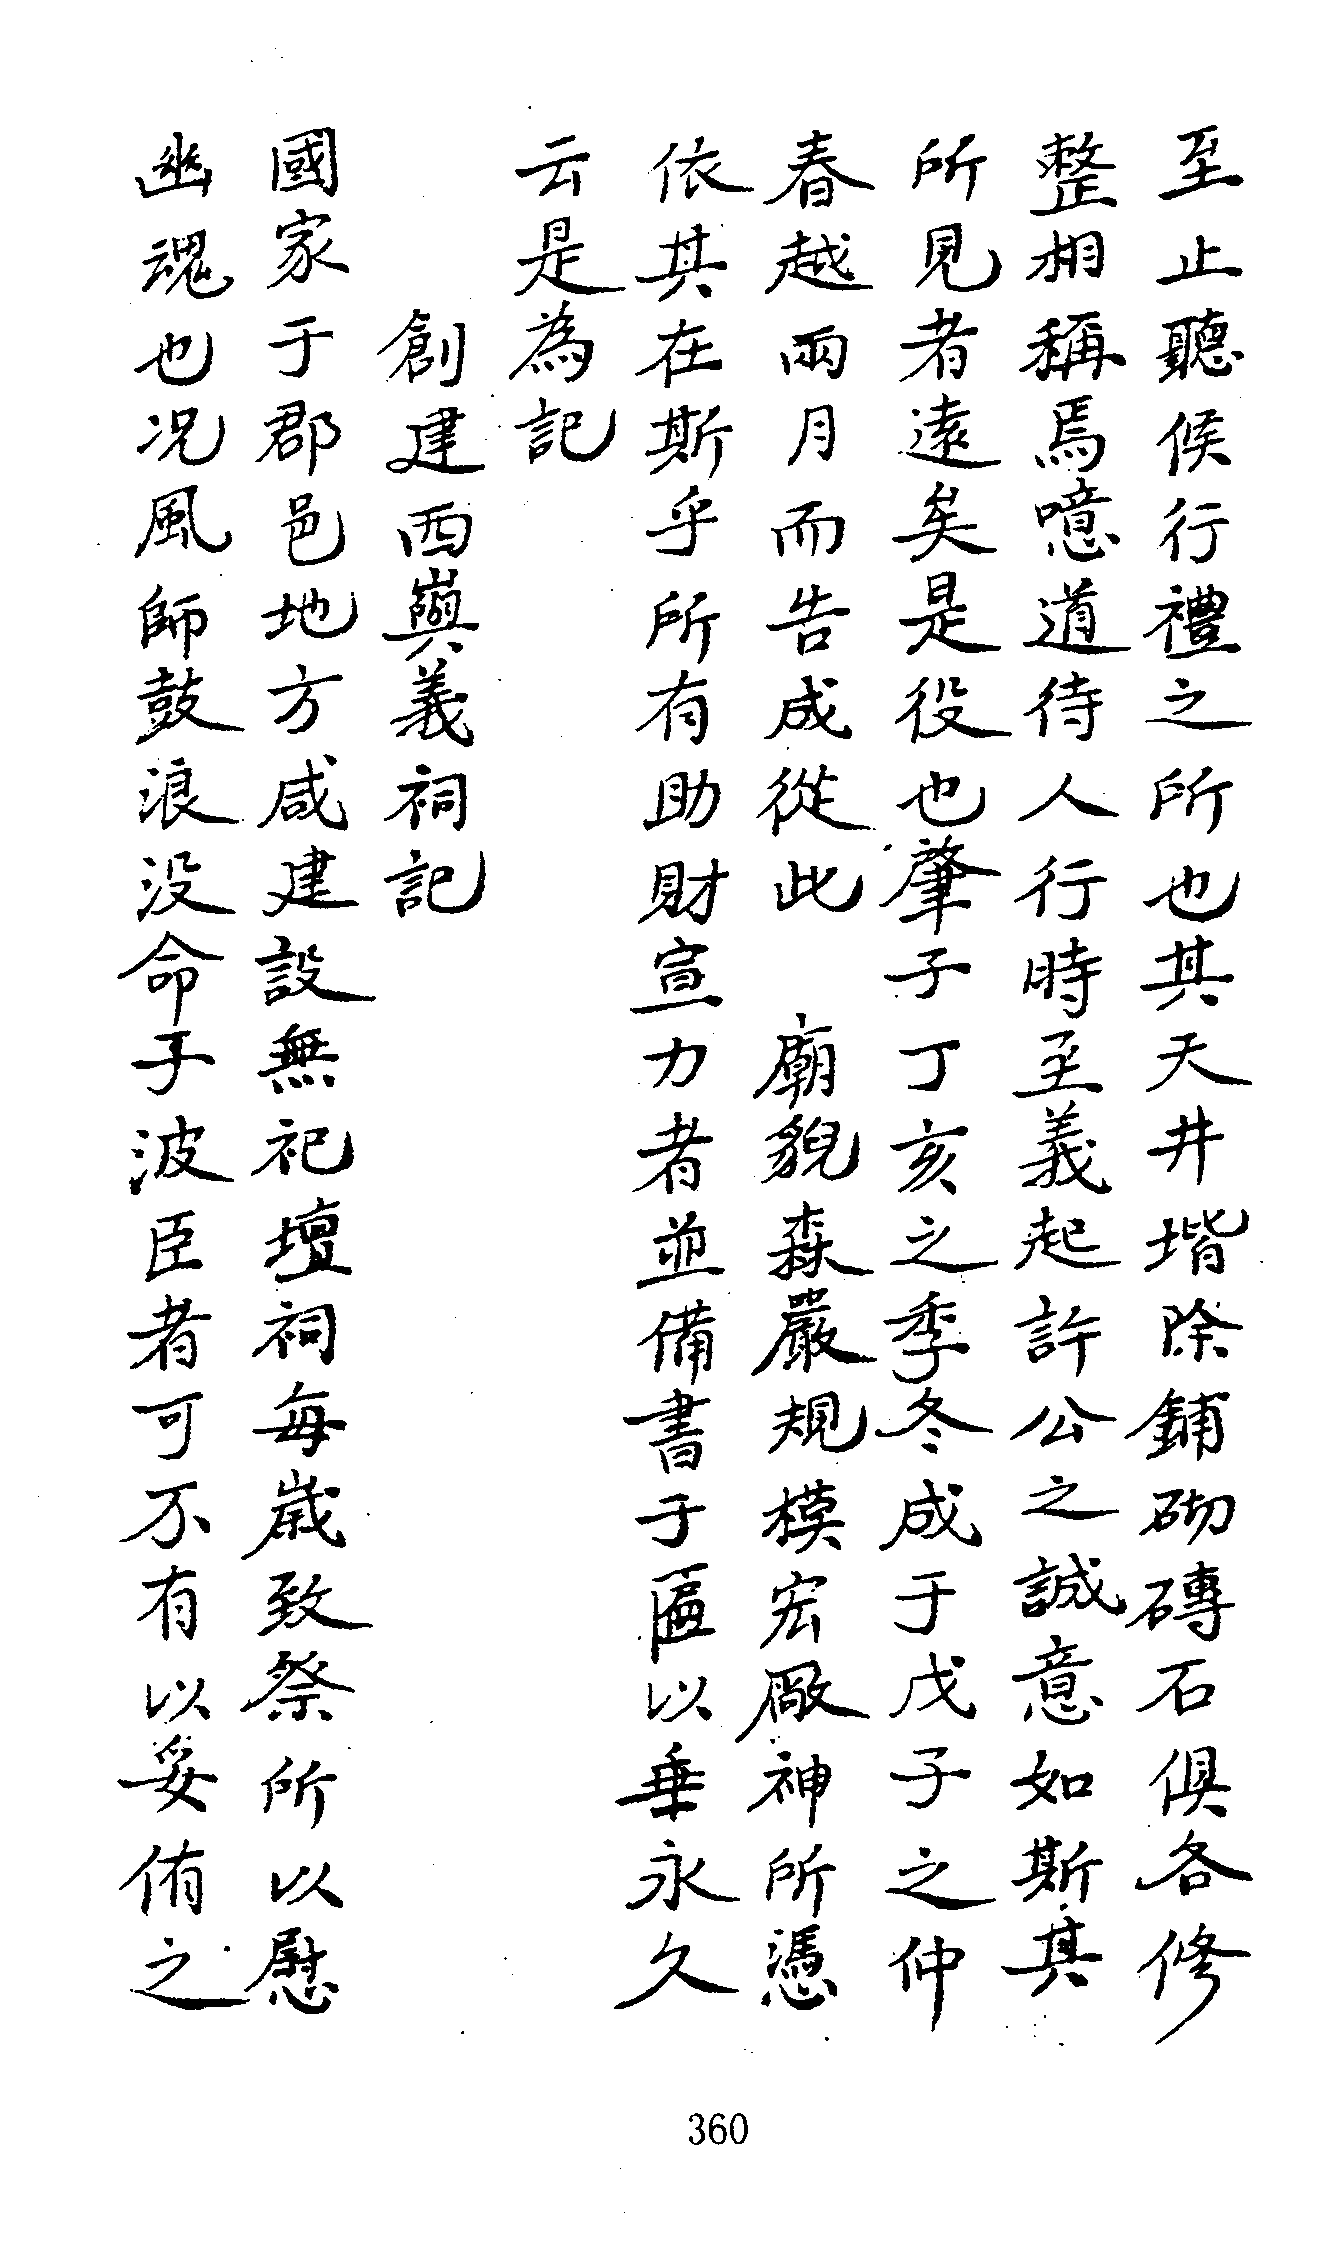 至止聽候行禮之所也其天井堦除鋪砌磚石俱各修
整相稱焉噫道待人行時至義起許公之誠意如斯其
所見者遠矣是役也肇子丁亥之季冬成于戊子之仲
春越兩月而告成從此　廟貌森嚴規模宏厰神所憑
依其在斯乎所有助財宣力者並備書于匾以垂永久
云是為記
創建西嶼義祠記
國家于郡邑地方咸建設無祀壇祠每歲致祭所以慰
幽魂也况風師鼓浪沒命于波臣者可不有以妥侑之
360